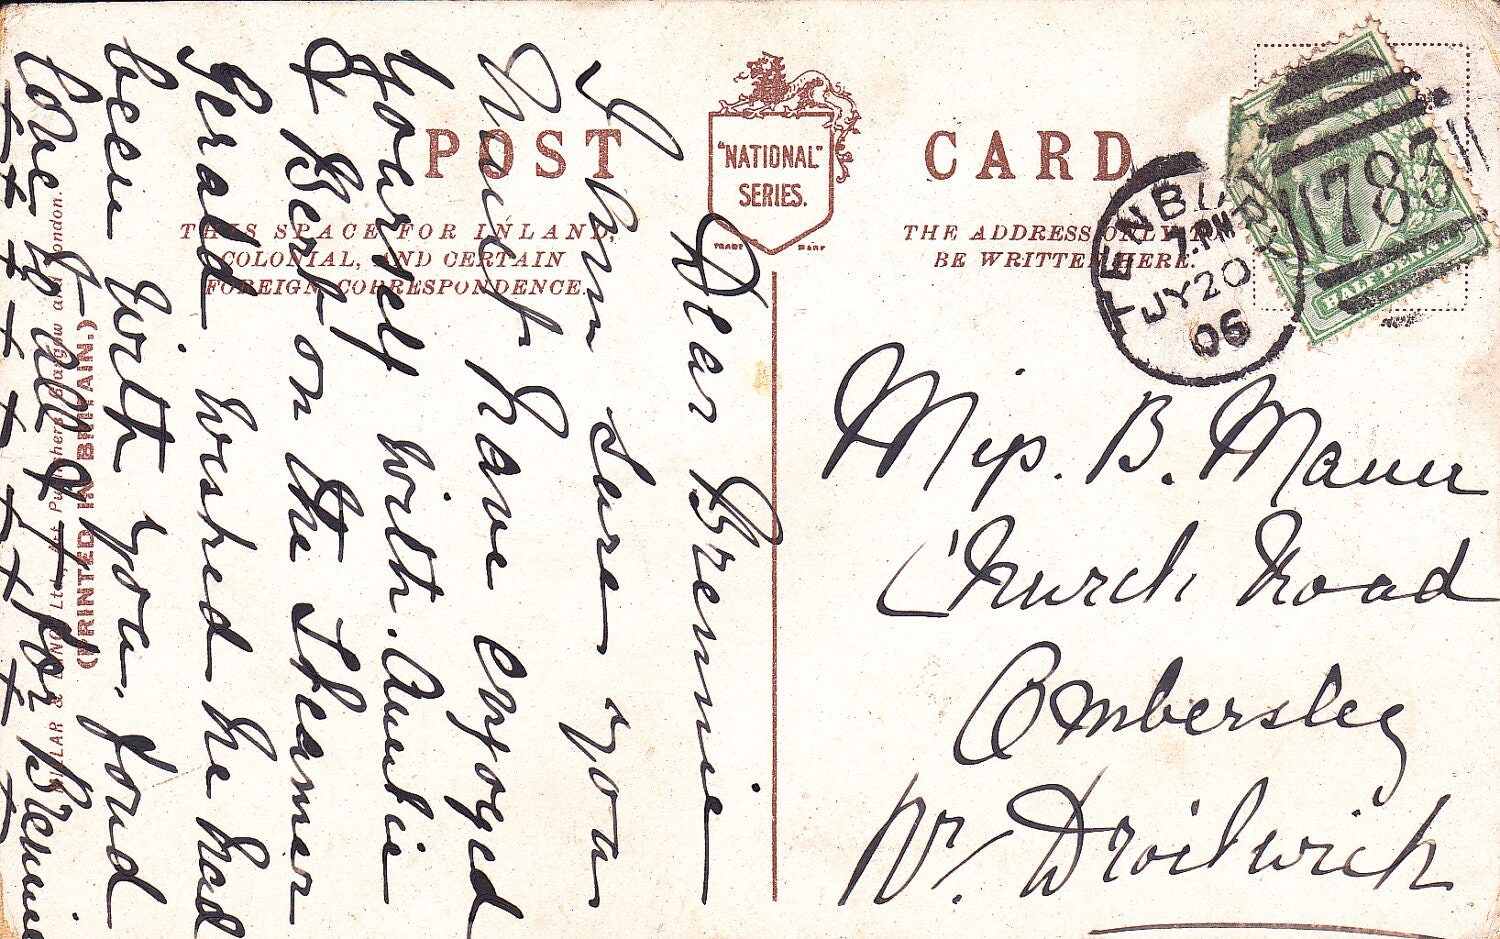 POST CARD
"NATIONAL"
SERIES.
TRADE MARK
THIS SPACE FOR INLAND,
COLONIAL, AND CERTAIN
FOREIGN CORRESPONDENCE.
THE ADDRESS ONLY
BE WRITTEN HERE.
TENBY
7 PM
JY 20
06
1783
HALF PENNY
Dear Brennie
I am sure you
must have enjoyed
yourself with Auntie
& Bert on the Steamer
Gerald wished he had
been with you. fond
love to all & for Brennie
Miss. B.
Church Road
Ombersley
Nr. Droitwich
MILLAR & LANG Ltd., Art Publishers, Glasgow and London.
(PRINTED IN BRITAIN.)